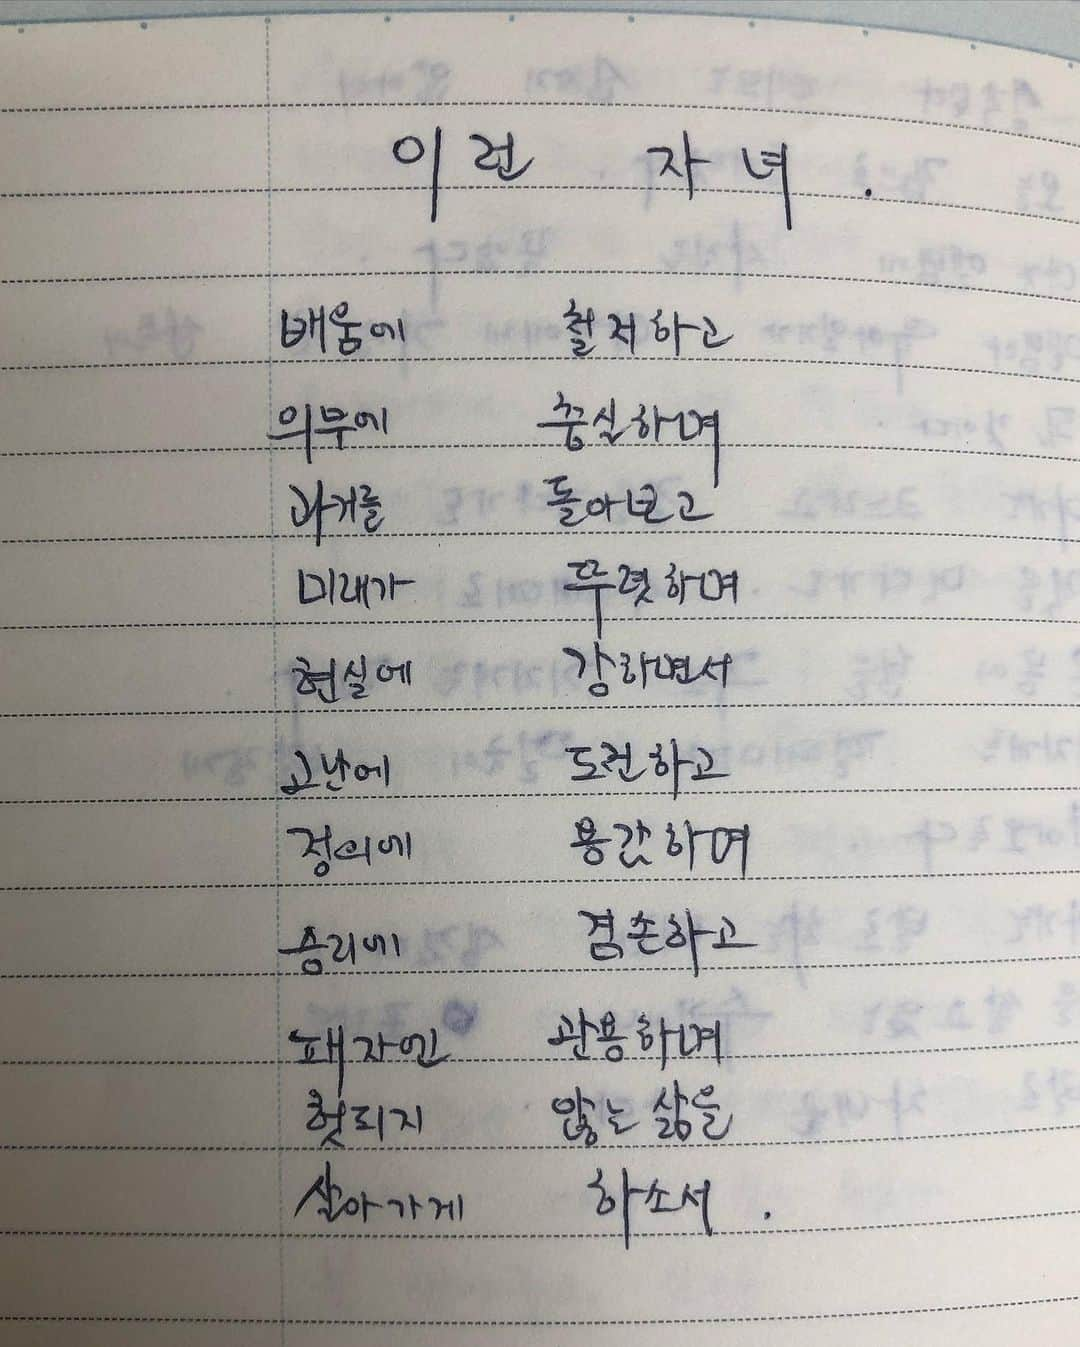 이런 자녀.
배움에 철저하고
의무에 충실하며
과거를 돌아보고
미래가 뚜렷하며
현실에 강하면서
고난에 도전하고
정의에 용감하며
승리에 겸손하고
패자엔 관용하며
헛되지 않는 삶을
살아가게 하소서.